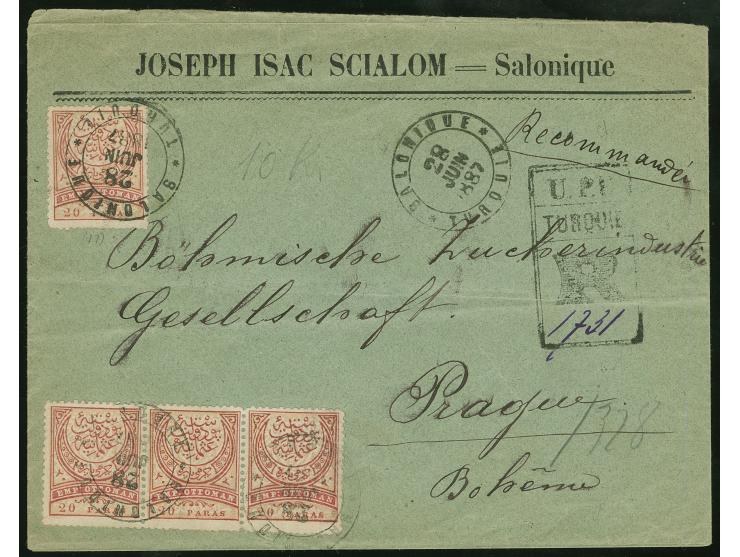 JOSEPH ISAC SCIALOM — Salonique
20
SALONIQUE * TURQUIE *
28
JUIN
887
SALONIQUE * TURQUIE *
28
JUIN
887
Recommandée
10 K
U.P.U
TURQUIE
R
1731
Böhmische Zuckerindustrie
Gesellschaft.
Prague
1328
Bohême
EMP: OTTOMAN
EMP: OTTOMAN
EMP: OTTOMAN
20 PARAS
20 PARAS
20 PARAS
28
JUIN